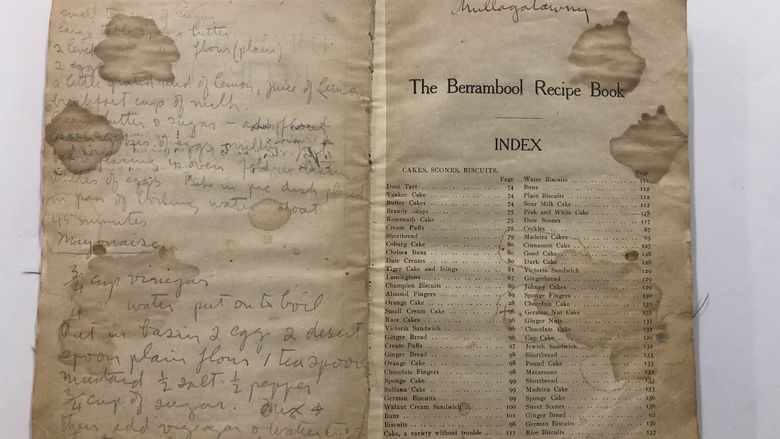 small
large table spoon butter
2 level flour (plain)
2 eggs
a little grated rind of lemon, juice of Lemon
breakfast cup of milk.
butter & sugar
of eggs, milk
in oven fold in
whites of eggs. Bake in pie dish, placed
in pan of boiling water about
45 minutes
Mayonaise
3/4 cup vinegar
1/4 water put on to boil
Put in basin 2 egg 2 desert
spoon plain flour 1 teaspoon
mustard 1/2 salt 1/2 pepper
3/4 cup of sugar. Mix &
then add vinegar & water
Mullagatawny
The Berrambool Recipe Book
INDEX
CAKES, SCONES, BISCUITS.
Page
Dust Tart 74
Yankee Cake 74
Butter Cakes 74
Brandy Snaps 75
Roseneath Cake 75
Cream Puffs 77
Shortbread 79
Coburg Cake 80
Chelsea Buns 80
Date Creams 80
Tiger Cake and Icings 81
Lamingtons 67
Champion Biscuits 89
Almond Fingers 89
Orange Cake 28
Small Cream Cake 96
Race Cakes 96
Victoria Sandwich 96
Ginger Bread 66
Cream Puffs 97
Ginger Bread 98
Orange Cake 98
Chocolate Fingers 98
Sponge Cake 99
Sultana Cake 99
German Biscuits 99
Walnut Cream Sandwich 100
Buns 101
Biscuits 96
Cake, a variety without trouble 111
Page
Water Biscuits 111
Buns 112
Plain Biscuits 112
Sour Milk Cake 112
Pink and White Cake 118
Date Scones 117
Cockles 87
Madeira Cakes 65
Cinnamon Cake 127
Good Cake 128
Dark Cake 128
Victoria Sandwich 129
Gingerbread 129
Johnny Cakes 129
Sponge Fingers 130
Chocolate Cake 130
German Nut Cake 131
Ginger Nuts 131
Chocolate Cake 132
Cup Cake 132
Jewish Sandwich 132
Shortbread 133
Pound Cake 133
Macaroons 133
Shortbread 133
Madeira Cake 133
Sponge Cake 136
Sweet Scones 136
Ginger Bread 62
German Biscuits 61
Rice Biscuits 137